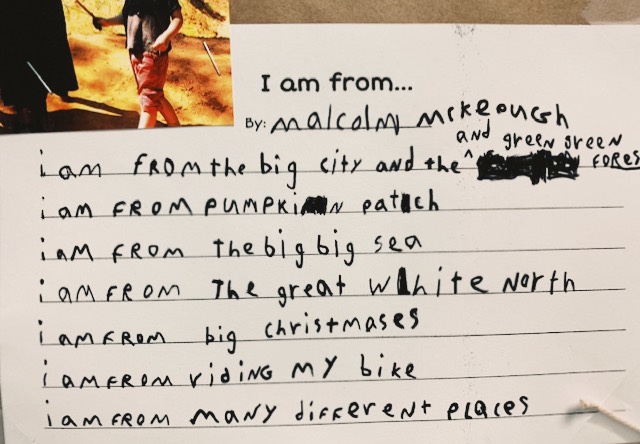 I am from...
By: malcolm mckeough
and green green
i am FROM the big city and the ^ FORES
i am FROM PUMPKIN patch
i aM FROM the big big sea
i aM FROM The great White North
i am FROM big christmases
i am FROM riding MY bike
i am FROM MANY different places